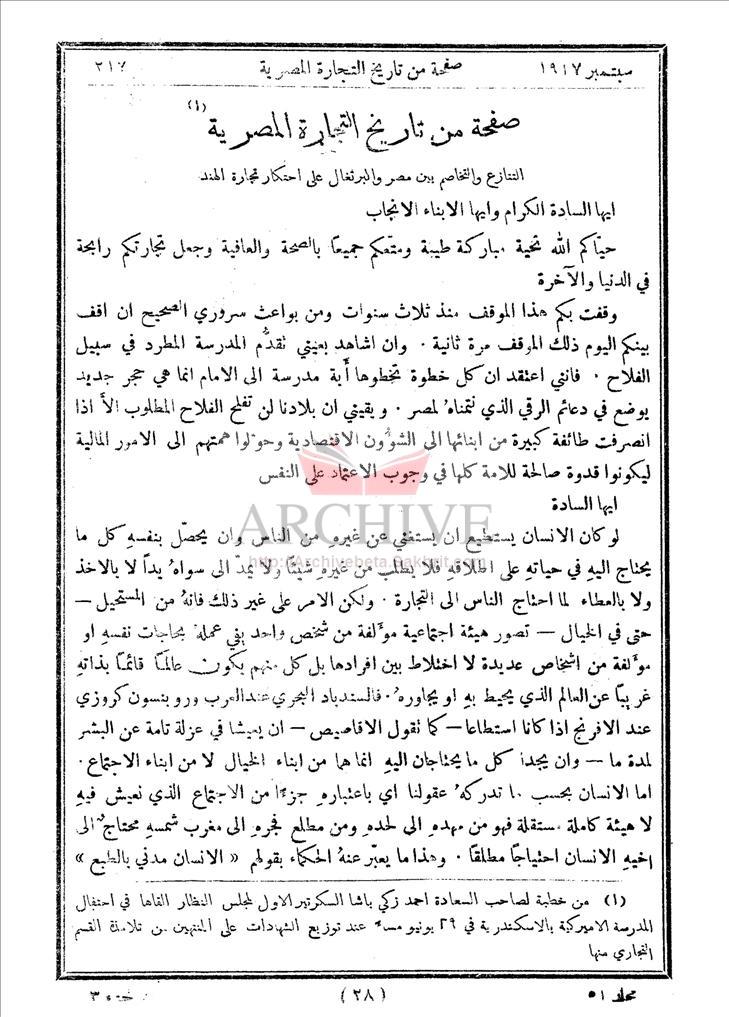 سبتمبر ١٩١٧ صفحة من تاريخ التجارة المصرية ٢١٧
صفحة من تاريخ التجارة المصرية (١)
التنازع والتخاصم بين مصر والبرتغال على احتكار تجارة الهند
ايها السادة الكرام وايها الابناء الانجاب
حيّاكم الله تحية مباركة طيبة ومتعكم جميعًا بالصحة والعافية وجعل تجارتكم رابحة
في الدنيا والآخرة
وقفت بكم هذا الموقف منذ ثلاث سنوات ومن بواعث سروري الصحيح ان اقف
بينكم اليوم ذلك الموقف مرة ثانية . وان اشاهد بعيني نقدُّم المدرسة المطرد في سبيل
الفلاح . فانني اعتقد ان كل خطوة تخطوها أَية مدرسة الى الامام انما هي حجر جديد
يوضع في دعائم الرقي الذي نتمناهُ لمصر . ويقيني ان بلادنا لن تفلح الفلاح المطلوب الاَّ اذا
انصرفت طائفة كبيرة من ابنائها الى الشؤُون الاقتصادية وحوَّلوا همتهم الى الامور المالية
ليكونوا قدوة صالحة للامة كلها في وجوب الاعتماد على النفس
ايها السادة
ARCHIVE
لو كان الانسان يستطيع ان يستغني عن غيرهِ من الناس وان يحصّل بنفسهِ كل ما
http://Archivebeta.Sakhrit.com
يحتاج اليهِ في حياتهِ على اطلاقهِ فلا يطلب من غيرهِ شيئًا ولا يمد الى سواهُ يداً لا بالاخذ
ولا بالعطاء لما احتاج الناس الى التجارة . ولكن الامر على غير ذلك فانهُ من المستحيل —
حتى في الخيال — تصور هيئة اجتماعية موَّلفة من شخص واحد يفي عملهُ بحاجات نفسهِ او
موَّلفة من اشخاص عديدة لا اختلاط بين افرادها بل كل منهم يكون عالمًا قائمًا بذاتهِ
غريبًا عن العالم الذي يحيط بهِ او يجاورهُ . فالسندباد البحري عند العرب وروبنسون كروزي
عند الافرنج اذا كانا استطاعا — كما نقول الاقاصيص — ان يعيشا في عزلة تامة عن البشر
لمدة ما — وان يجدا كل ما يحتاجان اليهِ انما هما من ابناء الخيال لا من ابناء الاجتماع .
اما الانسان بحسب ما تدركهُ عقولنا اي باعتبارهِ جزءًا من الاجتماع الذي نعيش فيهِ
لا هيئة كاملة مستقلة فهو من مهدهِ الى لحدهِ ومن مطلع فجرهِ الى مغرب شمسهِ محتاج الى
اخيهِ الانسان احتياجًا مطلقًا . وهذا ما يعبّر عنهُ الحكماء بقولهم « الانسان مدني بالطبع »
(١) من خطبة لصاحب السعادة احمد زكي باشا السكرتير الاول لمجلس النظار القاها في احتفال
المدرسة الاميركية بالاسكندرية في ٢٩ يونيو مساءً عند توزيع الشهادات على المنتهين من تلامذة القسم
التجاري منها
مجلد ٥١ (٢٨) جزء ٣